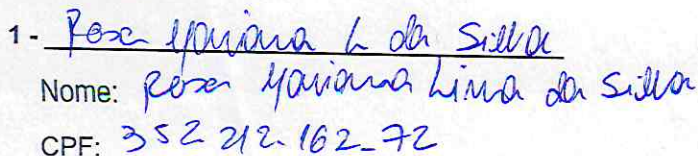 1 - Rosa Mariana L da Silva
Nome: Rosa Mariana Lima da Silva
CPF: 352 212.162-72